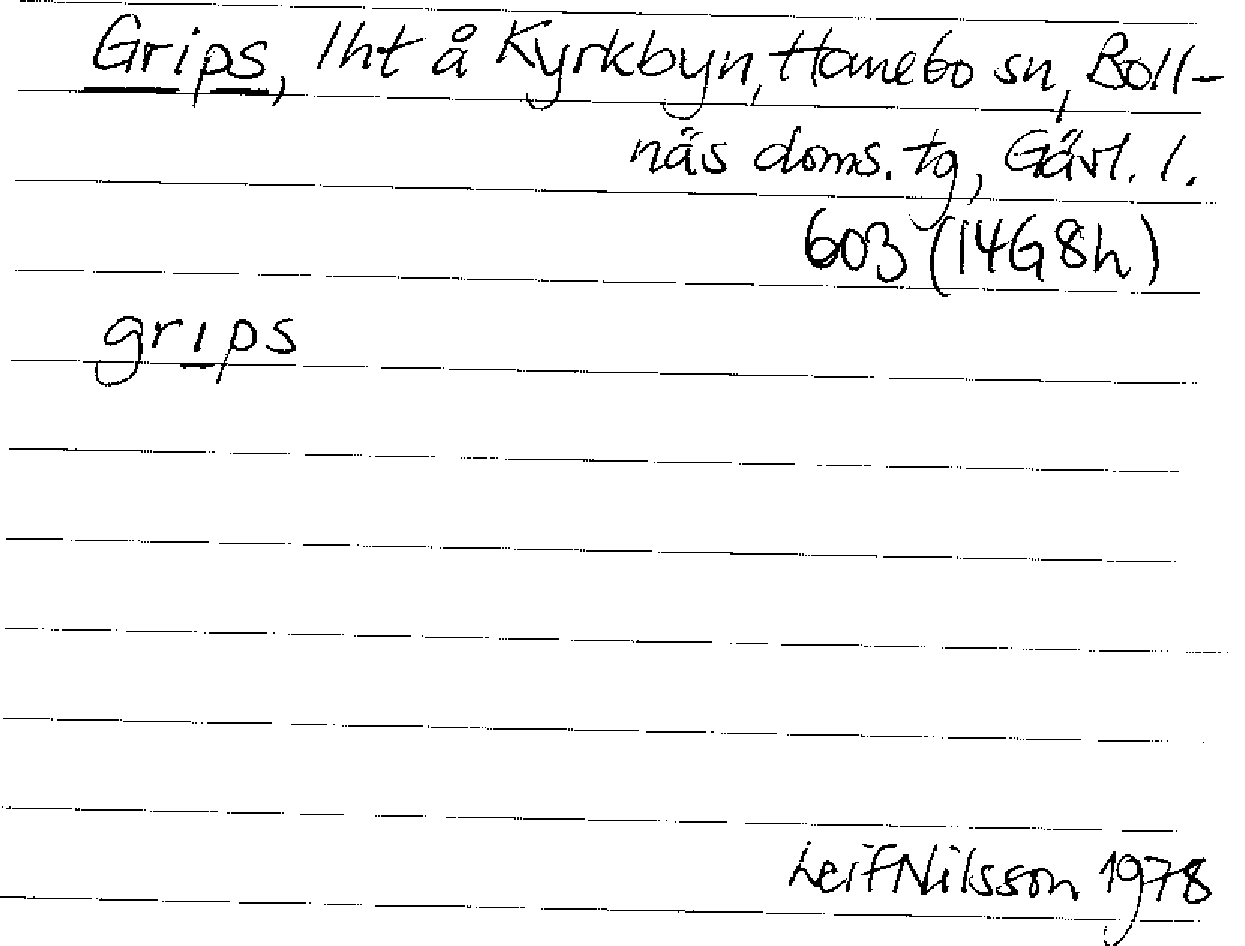 Grips, lht å Kyrkbyn, Hanebo sn, Boll-
näs doms. tg, Gävl. l.
603 (14G8h)
grips
Leif Nilsson 1978